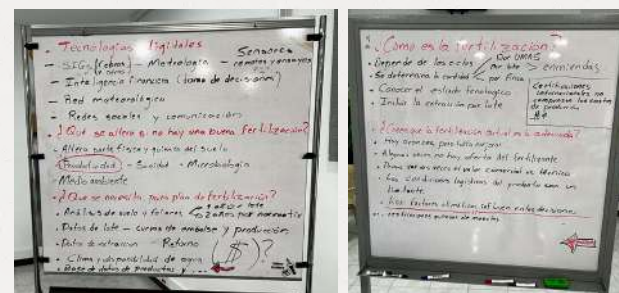 . Tecnologías digitales
Sensores
remotos y ensayos
- SIGs (cebras) - Metrología
- Inteligencia financiera (toma de decisiones)
- Red meteorológica
- Redes sociales y comunicación
. ¿Qué se altera si no hay una buena fertilización?
- Altera parte física y química del suelo
Productividad - Sanidad - Microbiología
- Medio ambiente
. ¿Que se necesita para plan de fertilización?
. Análisis de suelo y foliares
2 años por normativa
- Datos de lote - curvas de embalse y producción
- Datos de extracción - Retorno ($)?
. Clima y disponibilidad de agua
. Base de datos de productos y ...
¿Como es la fertilización?
. Depende de los ciclos
Por UMAS
Por lote > enmiendas
. Se determina la cantidad
por finca
. Conocer el estado fenologico
. Incluir la extracción por lote
Certificaciones
internacionales no
compensa los costos
de producción
. ¿Creen que la fertilización actual es la adecuada?
. Hay avances, pero falta mejorar
. Algunas veces no hay oferta del fertilizante
. Prima varias veces el valor comercial vs técnico
. Las condiciones logísticas del producto son un
limitante
. Los factores climáticos influyen en las decisiones